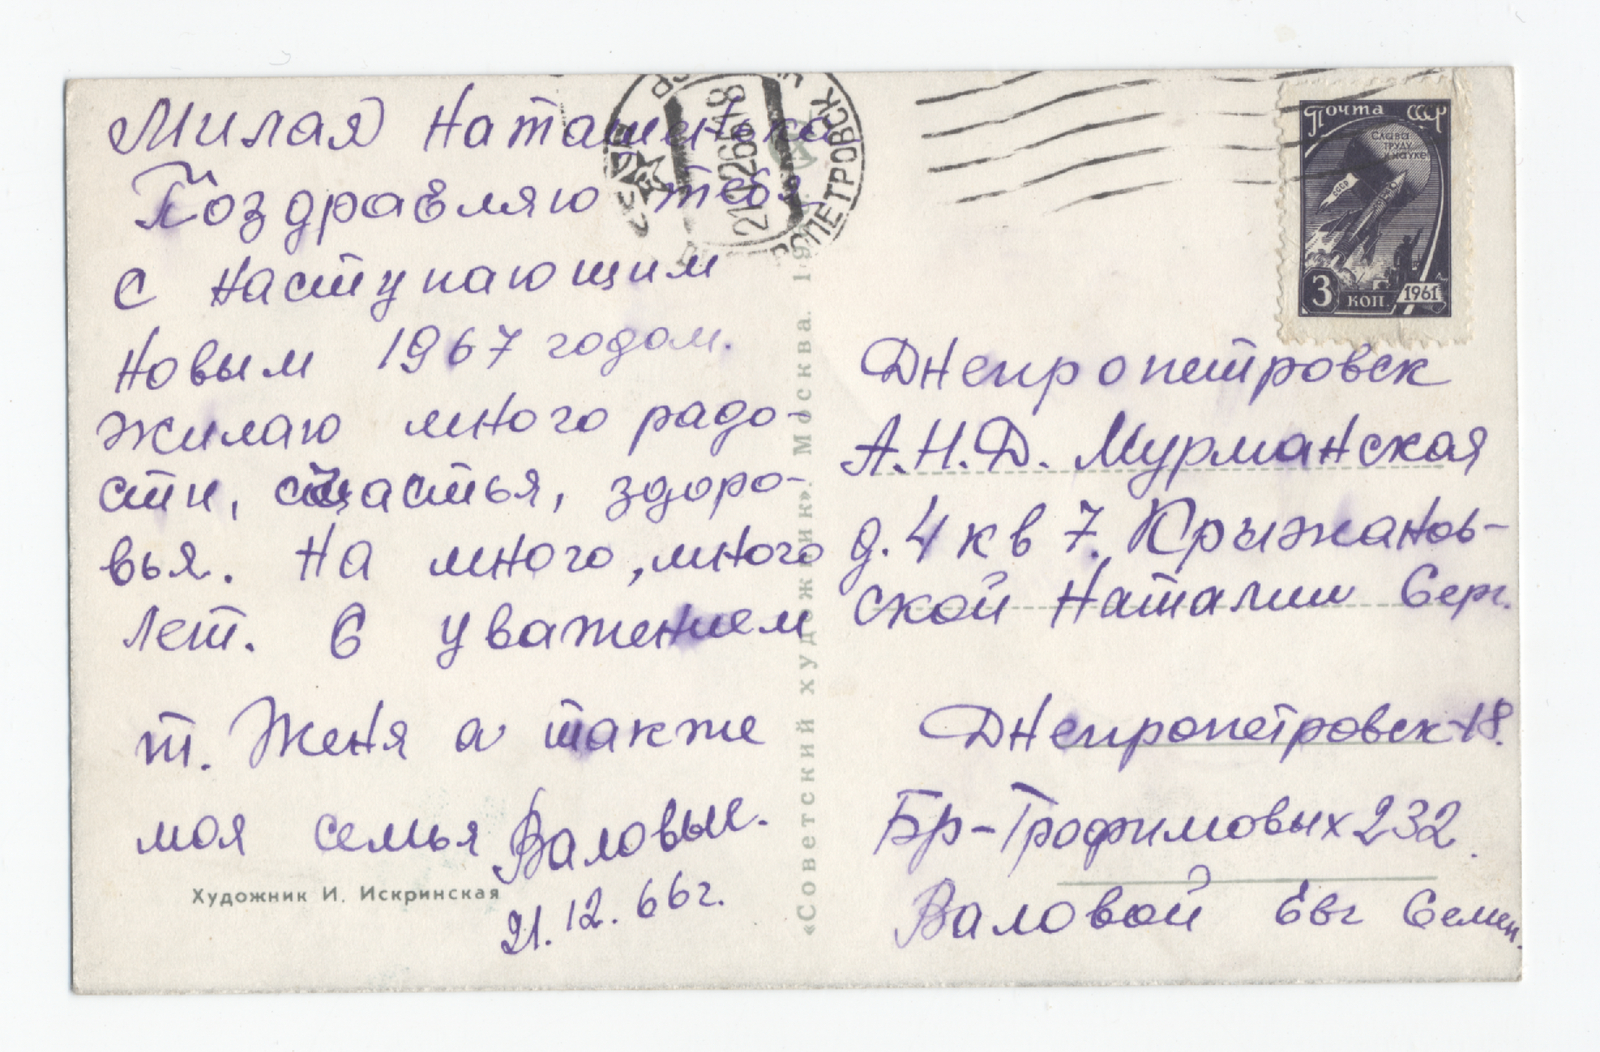 Милая Наташинька
Поздравляю тебя
с наступающим
Новым 1967 годом.
Жилаю много радо-
сти, счастья, здоро-
вья. На много, много
лет. С уважением
т. Женя а также
моя семья Валовые.
21.12.66г.
Художник И. Искринская
«Советский художник». Москва. 19
21 12 66 18
Почта СССР
Слава
труду
и науке
СССР
3 коп. 1961
Днепропетровск
А.Н.Д. Мурманская
д. 4 кв 7. Крыжанов-
ской Наталии Серг.
Днепропетровск-18.
Бр-Трофимовых 232.
Валовой Евг Семен.